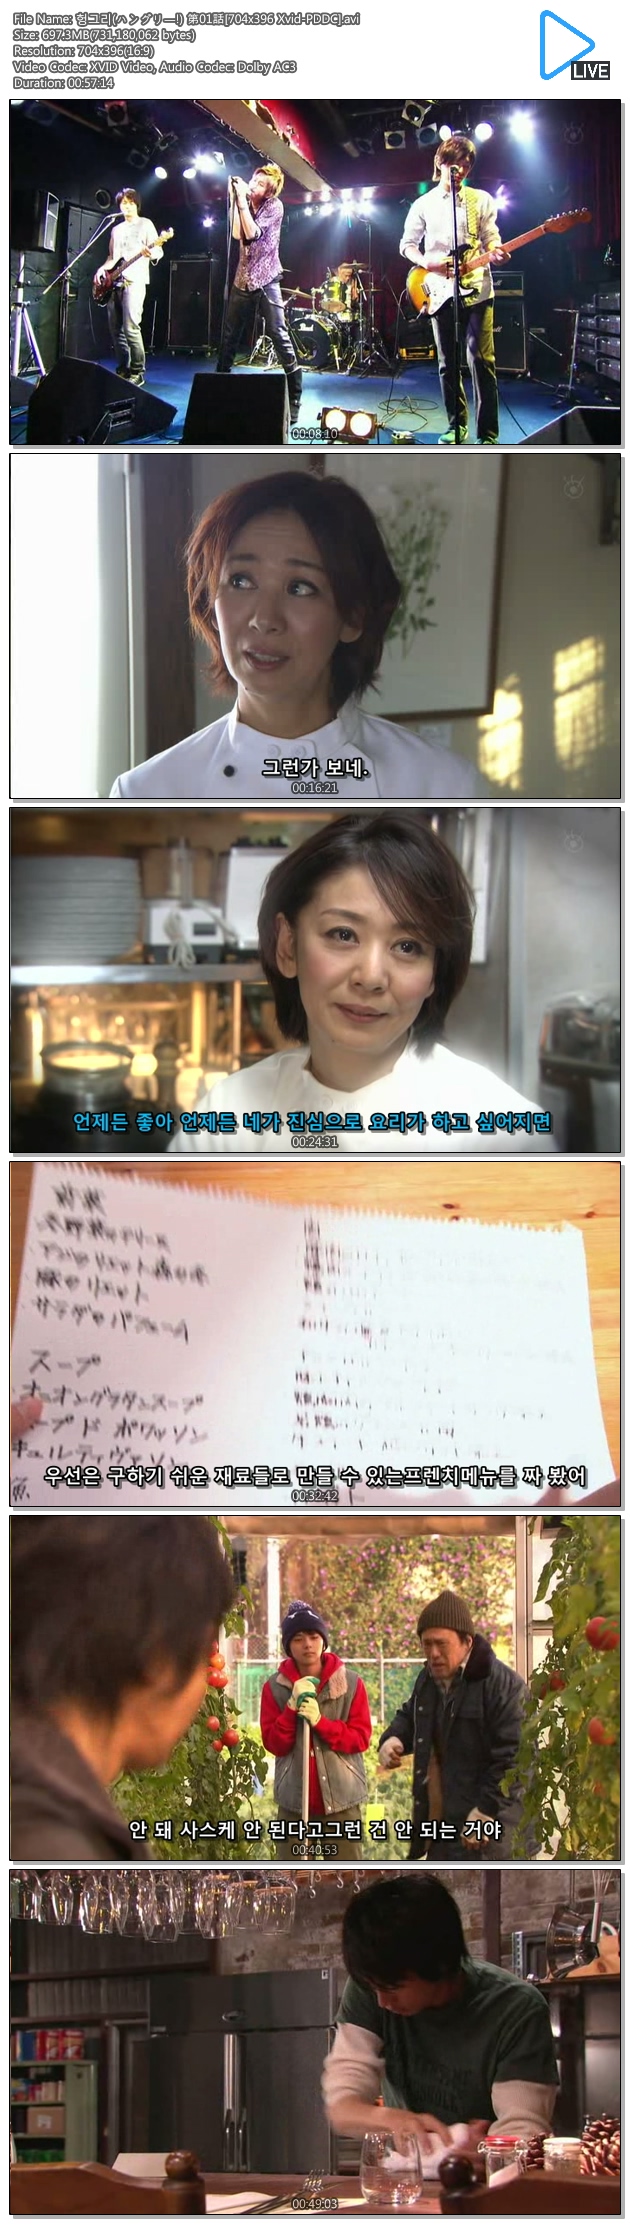 File Name: 헝그리(ハングリー!) 第01話[704x396 Xvid-PDDC].avi
Size: 697.3MB(731,180,062 bytes)
Resolution: 704x396(16:9)
Video Codec: XVID Video, Audio Codec: Dolby AC3
Duration: 00:57:14
LIVE
00:08:10
그런가 보네.
00:16:21
언제든 좋아 언제든 네가 진심으로 요리가 하고 싶어지면
00:24:31
前菜
スープ
オニオングラタンスープ
スープ ド ポワッソン
魚
우선은 구하기 쉬운 재료들로 만들 수 있는프렌치메뉴를 짜 봤어
00:32:42
안 돼 사스케 안 된다고그런 건 안 되는 거야
00:40:53
00:49:03